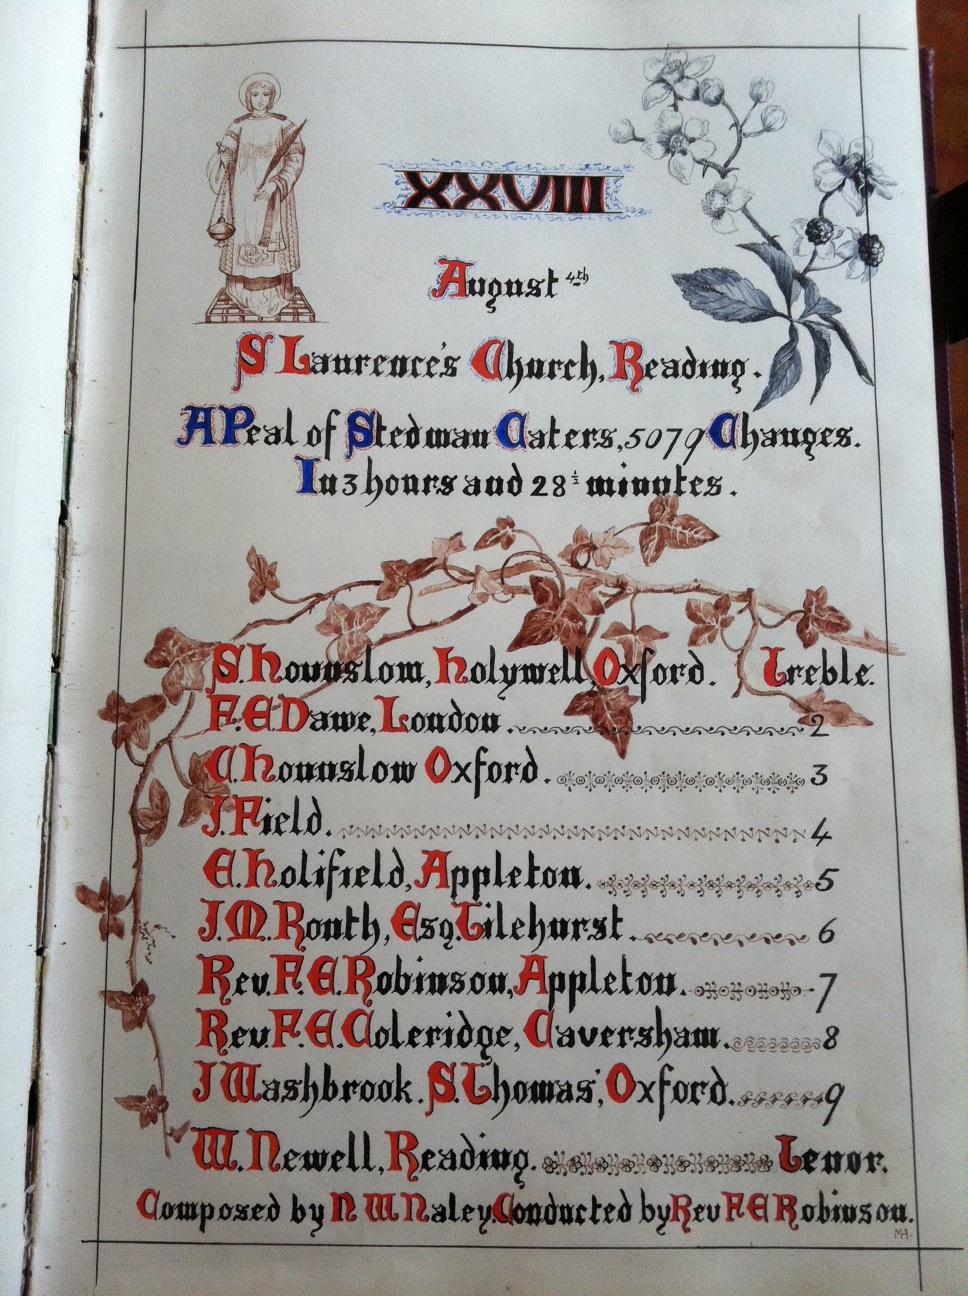 XXVIII
August 4th
S Laurence's Church, Reading.
A Peal of Stedman Caters, 5079 Changes.
In 3 hours and 28½ minutes.
S. Hounslow, Holywell, Oxford. Treble.
F.E Dawe, London. 2
C. Hounslow Oxford. 3
J. Field. 4
E. Holifield, Appleton. 5
J.M. Routh, Esq. Tilehurst. 6
Rev. F.E. Robinson, Appleton. 7
Rev. F.E. Coleridge, Caversham. 8
J Washbrook. S. Thomas', Oxford. 9
W. Newell, Reading. Tenor.
Composed by N W N aley. Conducted by Rev F E Robinson.
MH.